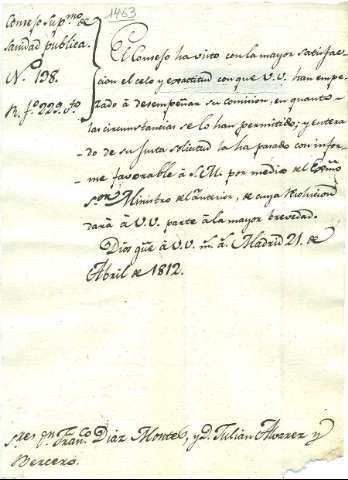 1463
Consejo Supmo. de
sanidad publica.
No. 198.
R. fo. 229. to
El Consejo ha visto con la mayor satisfac-
cion el celo y exactitud con que V.V. han empe-
zado à desempeñar su comision, en quanto
las circunstancias se lo han permitido; y entera
do de su justa solicitud la ha pasado con infor-
me favorable à S.M. por medio del Exmo
Sor. Ministro de lo interior, de cuya resolucion
darà à V.V. parte à la mayor brevedad.
Dios gue. à V.V. ms. as. Madrid 21. de
Abril de 1812.
Sres. Dn. Franco. Diaz Montes, y D. Julian Alvarez y
Bercero.